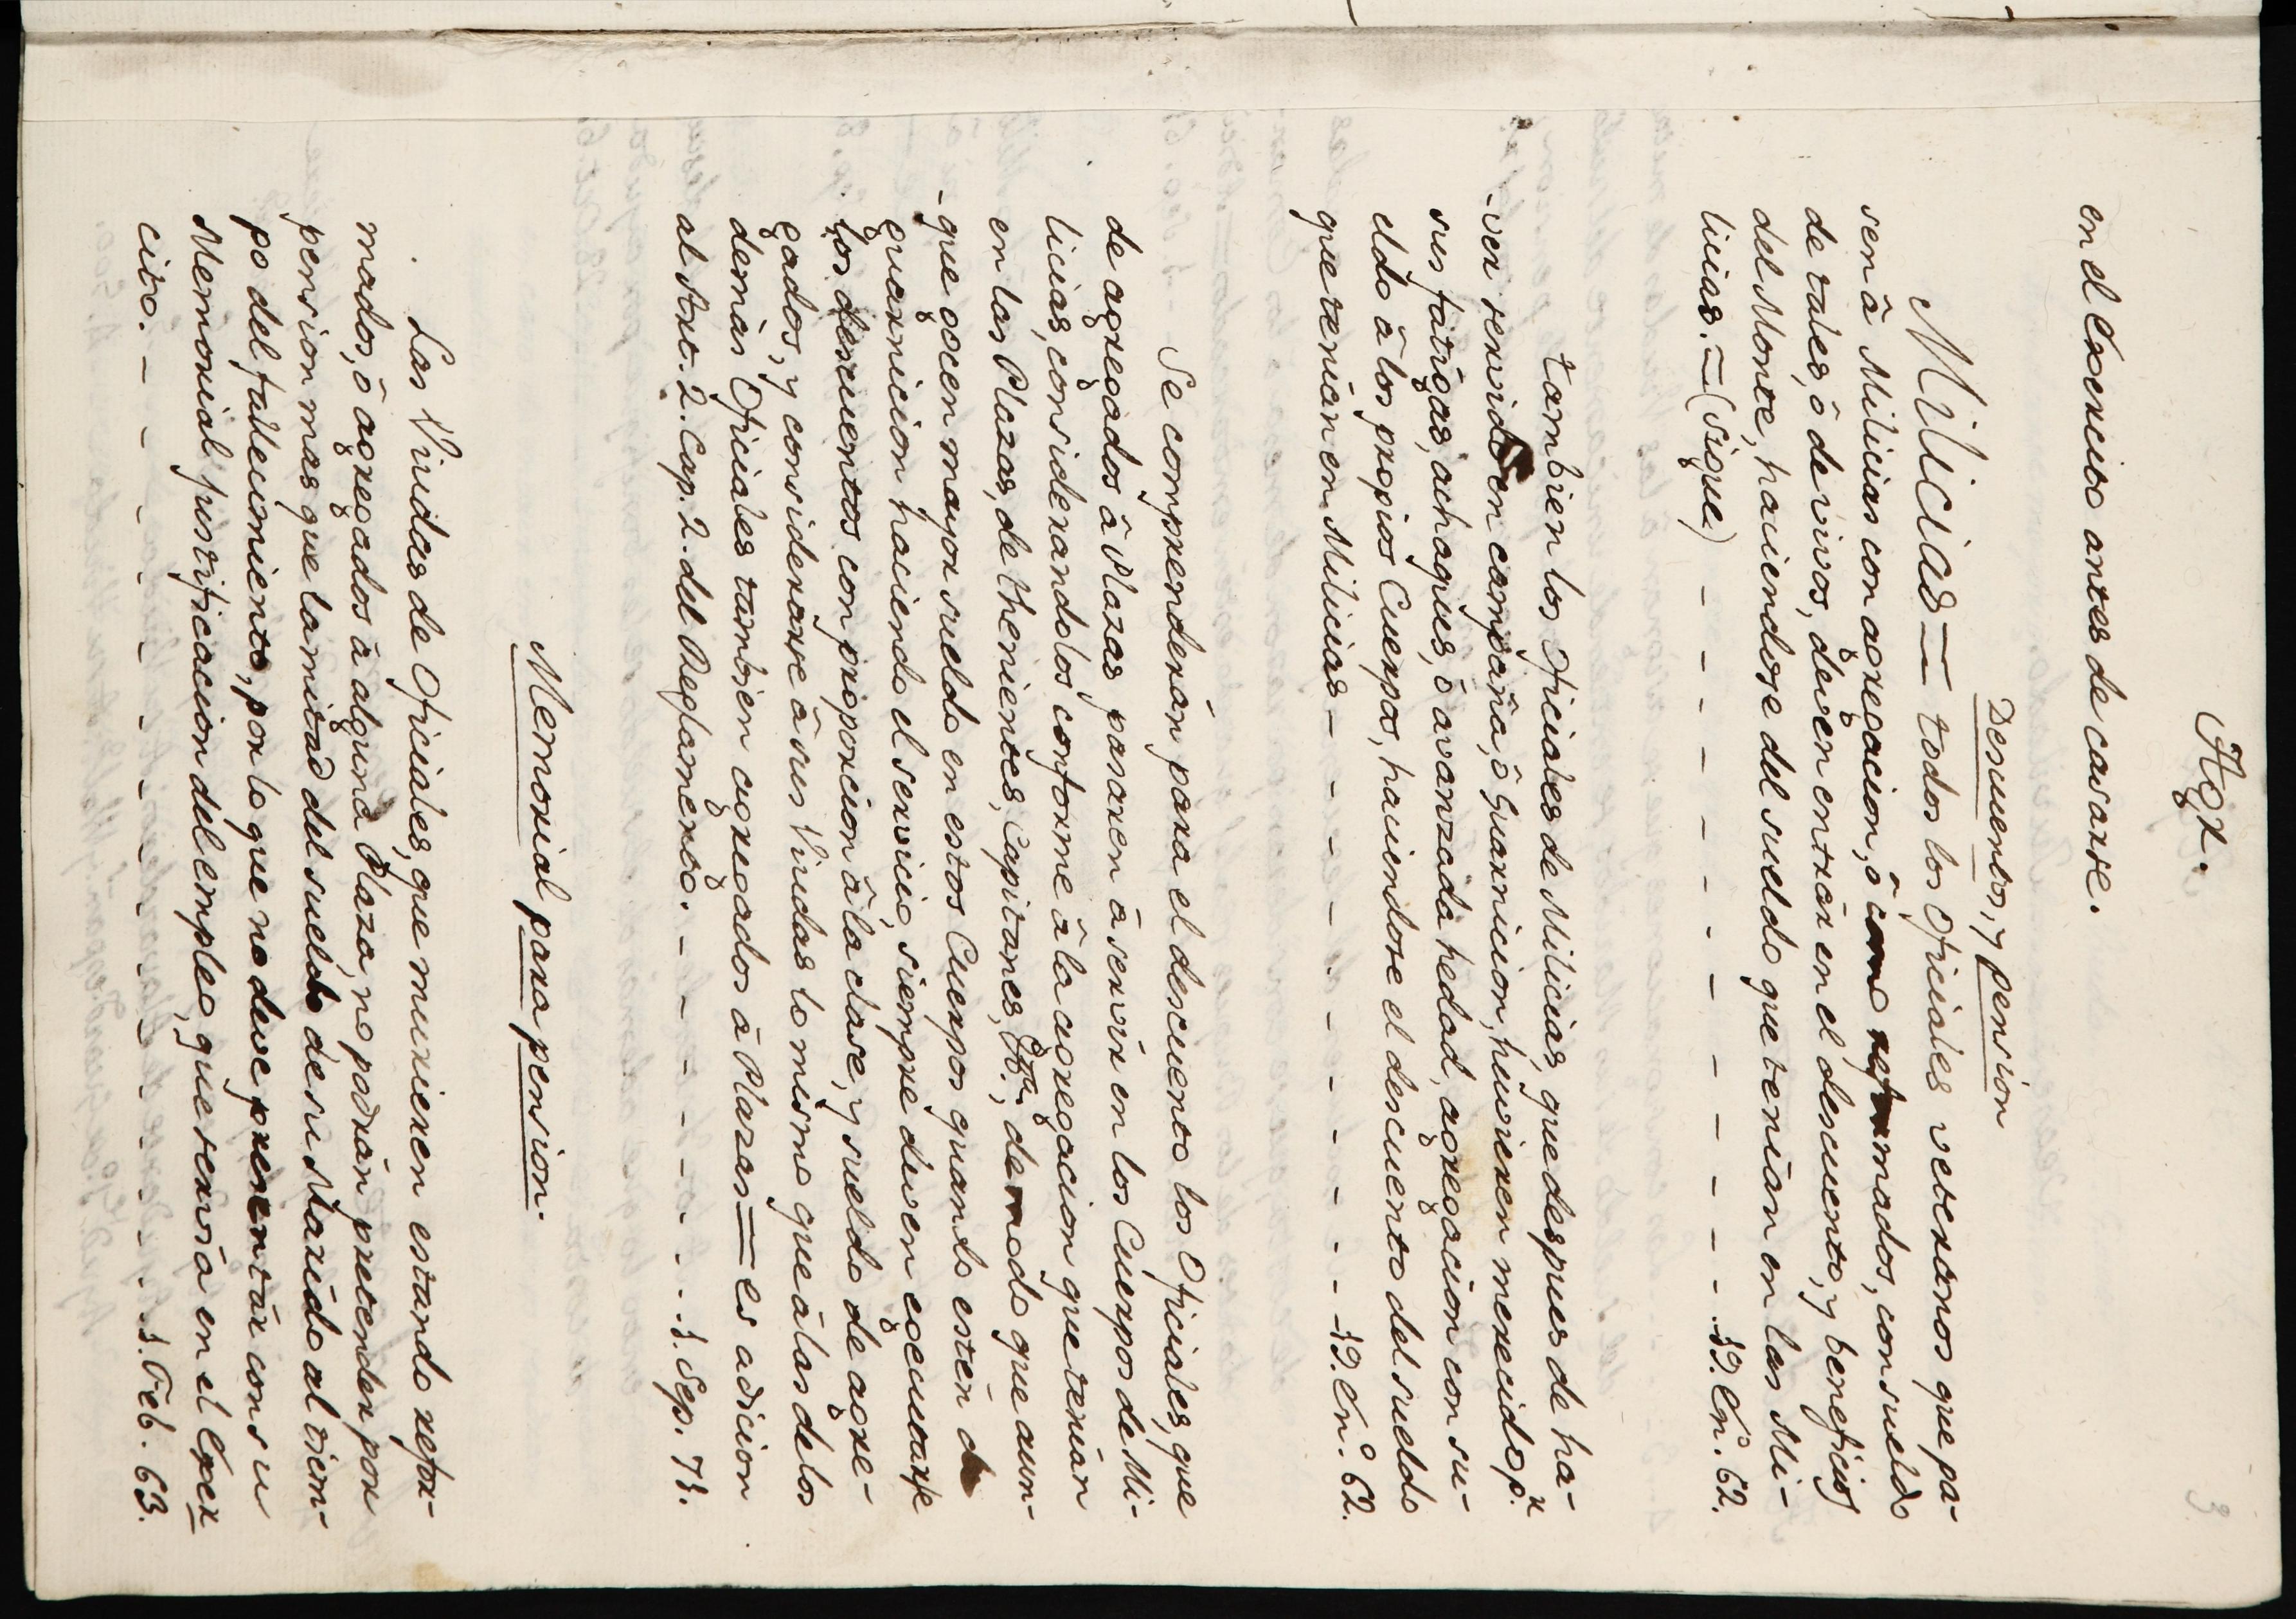 Agr.
3
en el Exercito antes de casarse.
Desuentos, y pension
Milicias = todos los Oficiales veteranos que pa-
sen â Milicias con agregacion, ô como reformados, con sueldo
de tales, ô de vivos, deven entrar en el descuento, y beneficio
del Monte, haviendose del sueldo que tenian en las Mi-
licias. = (sigue) - - - - - - - - - - - - 19. En.º 62.
tambien los Oficiales de Milicias, que despues de ha-
-ver servido en campaña, ô Guarnicion, huvieren merecido p.r
sus fatigas, achaques, ô avanzada hedad, agregacion con su-
eldo â los propios Cuerpos, haviendose el descuento del sueldo
que tenian en Milicias - - - - - - - - - - 19. En.º 62.
Se comprenderán para el descuento los Oficiales, que
de agregados â Plazas pasaren â servir en los Cuerpos de Mi-
licias, considerandolos conforme â la agregacion que tenian
en las Plazas, de thenientes, Capitanes, &ª; de modo que aun-
-que gocen mayor sueldo en estos Cuerpos quando estén de
guarnicion haciendo el servicio, siempre deven egecutarse
los desuentos con proporcion â la clase, y sueldo de agre-
gados, y considerarse â sus Viudas lo mismo que â las de los
demás Oficiales tambien agregados â Plazas = es adicion
al Art. 2. Cap. 2. del Reglamento. - - - - - - 1. Sep. 71.
Memorial para pension.
Las Viudas de Oficiales, que murieren estando refor-
mados, ô agregados â alguna Plaza, no podrán pretender por
pension mas que la mitad del sueldo de su Marido al tiem-
po del fallecimiento, por lo que no deve presentar con su
Memorial justificacion del empleo, que servia en el Exer
cito. - - - - - - - - - - - - - - 1. Feb. 63.